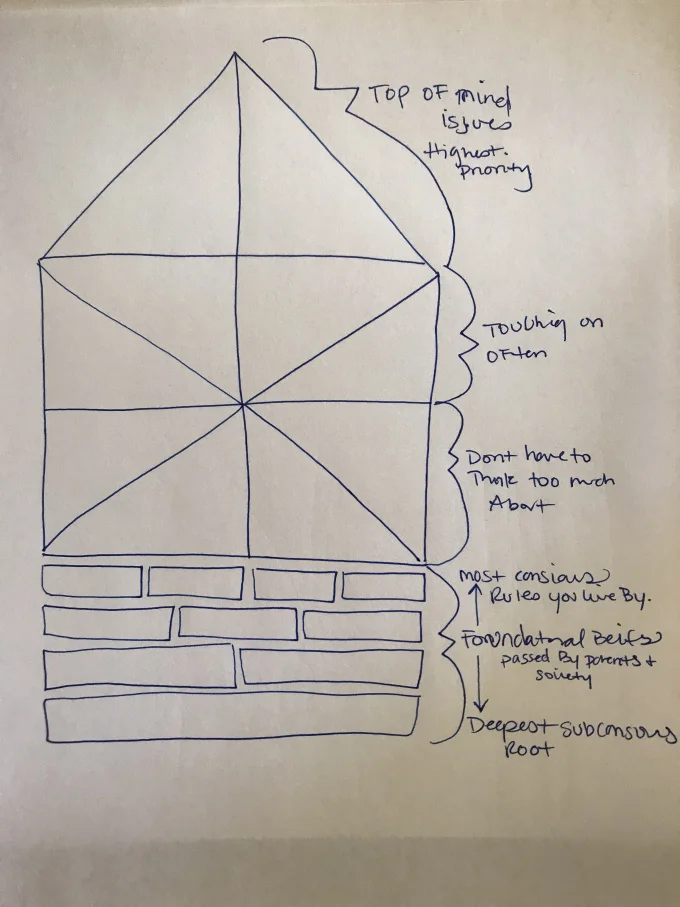 TOP OF mind
issues
Highest.
Priority
Touching on
OFten
Dont have to
Think too much
About
most consious
Rules you live By.
Foundational Beifs
passed By parents +
soiety
Deepest subconsious
Root